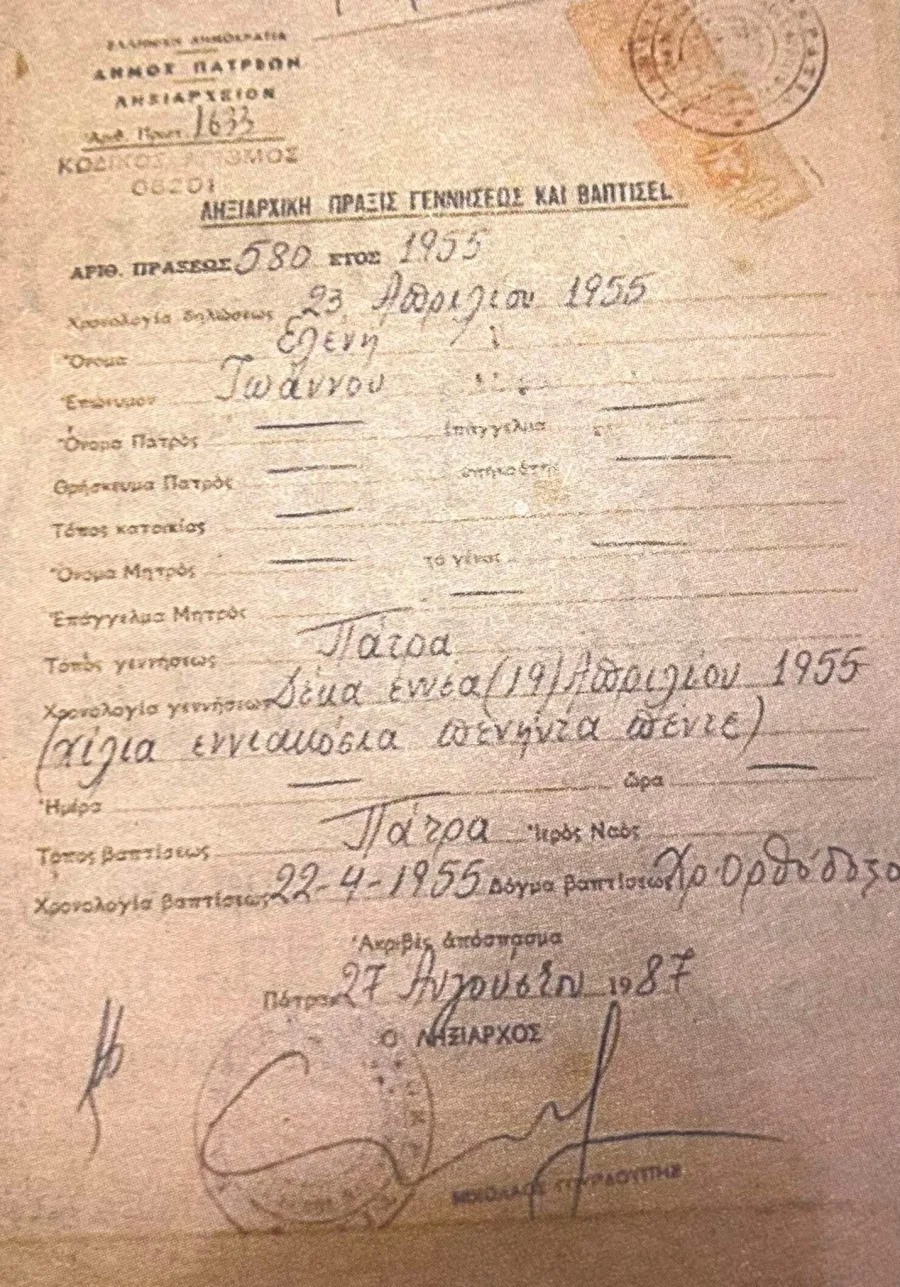 ΕΛΛΗΝΙΚΗ ΔΗΜΟΚΡΑΤΙΑ
ΔΗΜΟΣ ΠΑΤΡΕΩΝ
ΛΗΞΙΑΡΧΕΙΟΝ
Ἀριθ. Πρωτ. 1633
ΚΩΔΙΚΟΣ ΑΡΙΘΜΟΣ
06201
ΛΗΞΙΑΡΧΙΚΗ ΠΡΑΞΙΣ ΓΕΝΝΗΣΕΩΣ ΚΑΙ ΒΑΠΤΙΣΕΩΣ
ΑΡΙΘ. ΠΡΑΞΕΩΣ 580 ΕΤΟΣ 1955
Χρονολογία δηλώσεως 23 Απριλίου 1955
Ὄνομα Ελένη
Ἐπώνυμον Ιωάννου
Ὄνομα Πατρὸς — ἐπάγγελμα —
Θρήσκευμα Πατρὸς — —
Τόπος κατοικίας —
Ὄνομα Μητρὸς — τὸ γένος —
Ἐπάγγελμα Μητρὸς —
Τόπος γεννήσεως Πάτρα
Χρονολογία γεννήσεως Δέκα εννέα (19) Απριλίου 1955
(χίλια εννιακόσια πενήντα πέντε)
Ἡμέρα — ὥρα —
Τόπος βαπτίσεως Πάτρα Ἱερὸς Ναὸς
Χρονολογία βαπτίσεως 22-4-1955 Δόγμα βαπτίσεως Χρ. Ορθόδοξο
Ἀκριβὲς ἀπόσπασμα
Πάτραι 27 Αυγούστου 1987
Ο ΛΗΞΙΑΡΧΟΣ